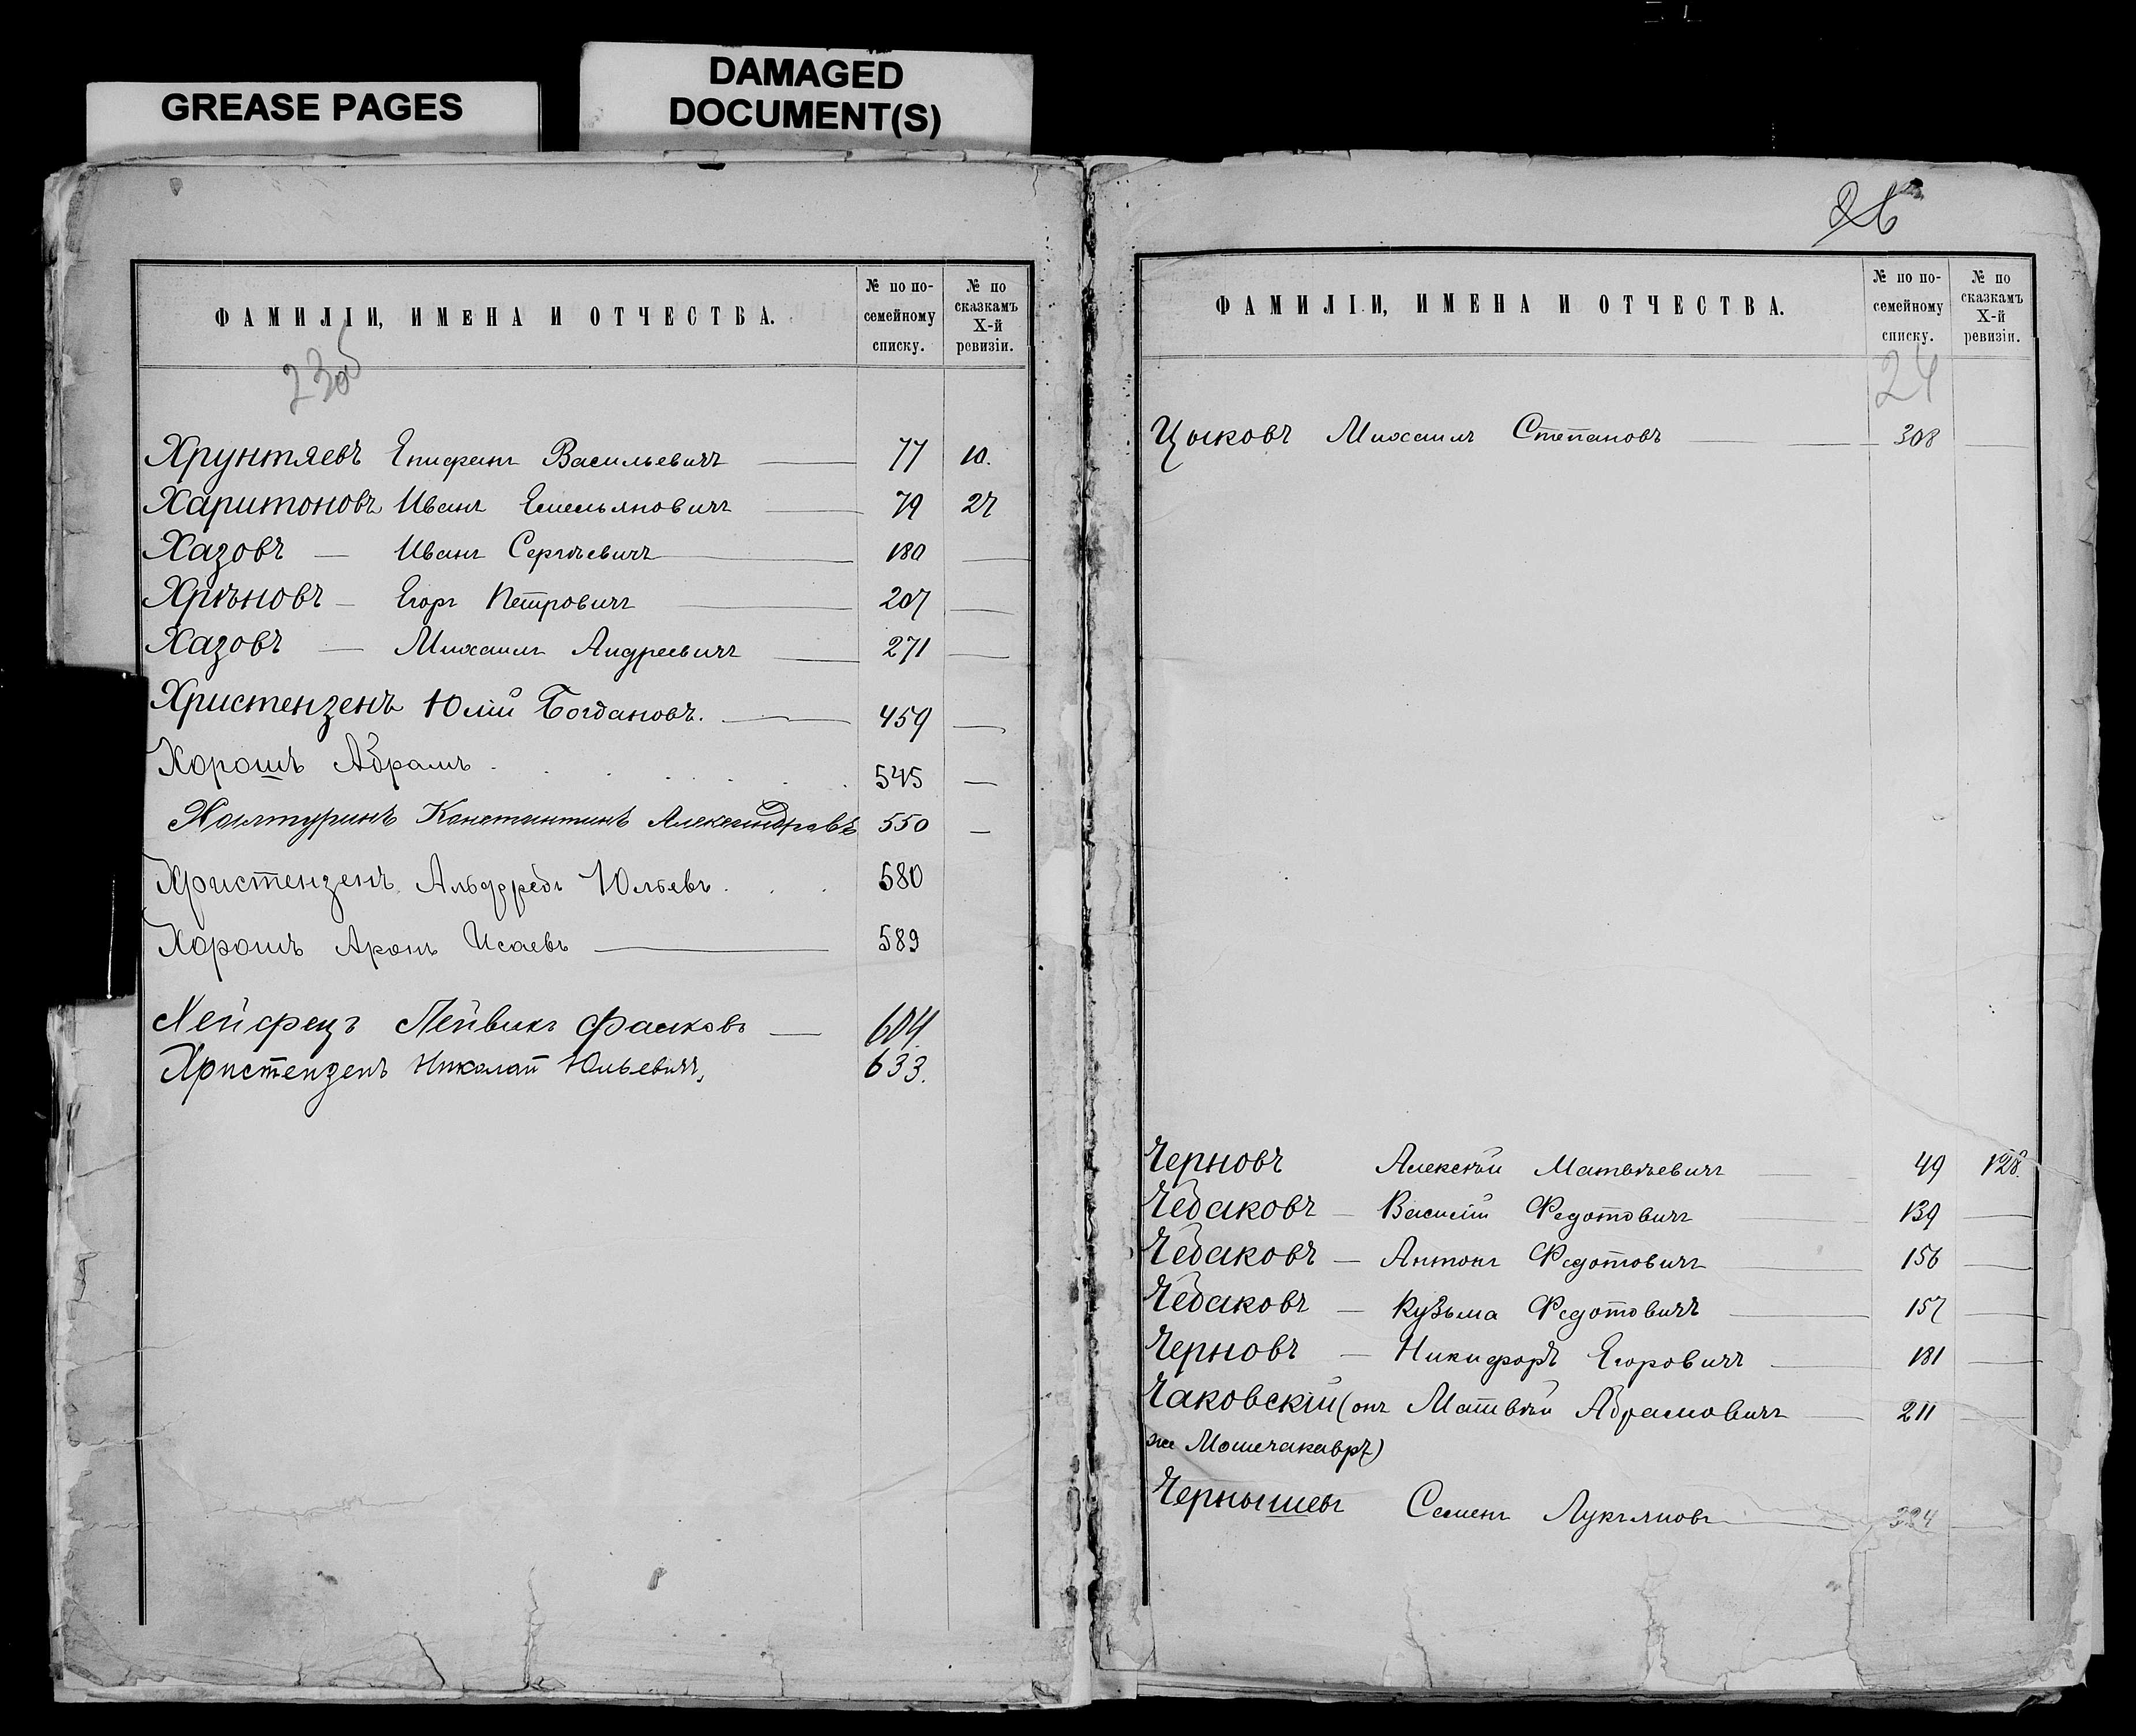 GREASE PAGES
DAMAGED
DOCUMENT(S)
ФАМИЛІИ, ИМЕНА И ОТЧЕСТВА. № по по-семейному списку. № по сказкамъ X-й ревизіи.
23об
Хрунтяевъ Епифанъ Васильевичъ — 77 10.
Харитоновъ Иванъ Емельяновичъ — 79 27
Хазовъ — Иванъ Сергѣевичъ — 180 —
Хрѣновъ — Егоръ Петровичъ — 207 —
Хазовъ — Михаилъ Андреевичъ — 271 —
Христензенъ Юлій Богдановъ. — 459 —
Хорошъ Абрамъ . . . . . . 545 —
Халтуринъ Константинъ Александровъ 550 —
Христензенъ Альфредъ Юльевъ . . . 580
Хорошъ Аронъ Исаевъ — 589
Хейфецъ Лейвикъ Фалковъ — 604.
Христензенъ Николай Юльевичъ, 633.
ФАМИЛІИ, ИМЕНА И ОТЧЕСТВА. № по по-семейному списку. № по сказкамъ X-й ревизіи.
24
Цыковъ Михаилъ Степановъ — 308 —
Черновъ Алексѣй Матвѣевичъ — 49 128.
Чедаковъ — Василій Федотовичъ — 139 —
Чедаковъ — Антонъ Федотовичъ — 156 —
Чедаковъ — Кузьма Федотовичъ — 157 —
Черновъ — Никифоръ Егоровичъ — 181 —
Чаковскій (онъ Матвѣй Абрамовичъ — 211 —
же Мошечакавръ)
Чернышевъ Семенъ Лукьяновъ — 324 —